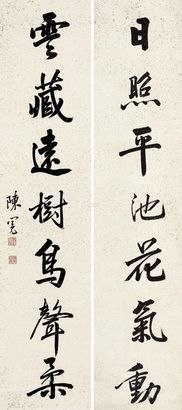 日照平池花氣動
雲藏遠樹鳥聲柔
陳寬